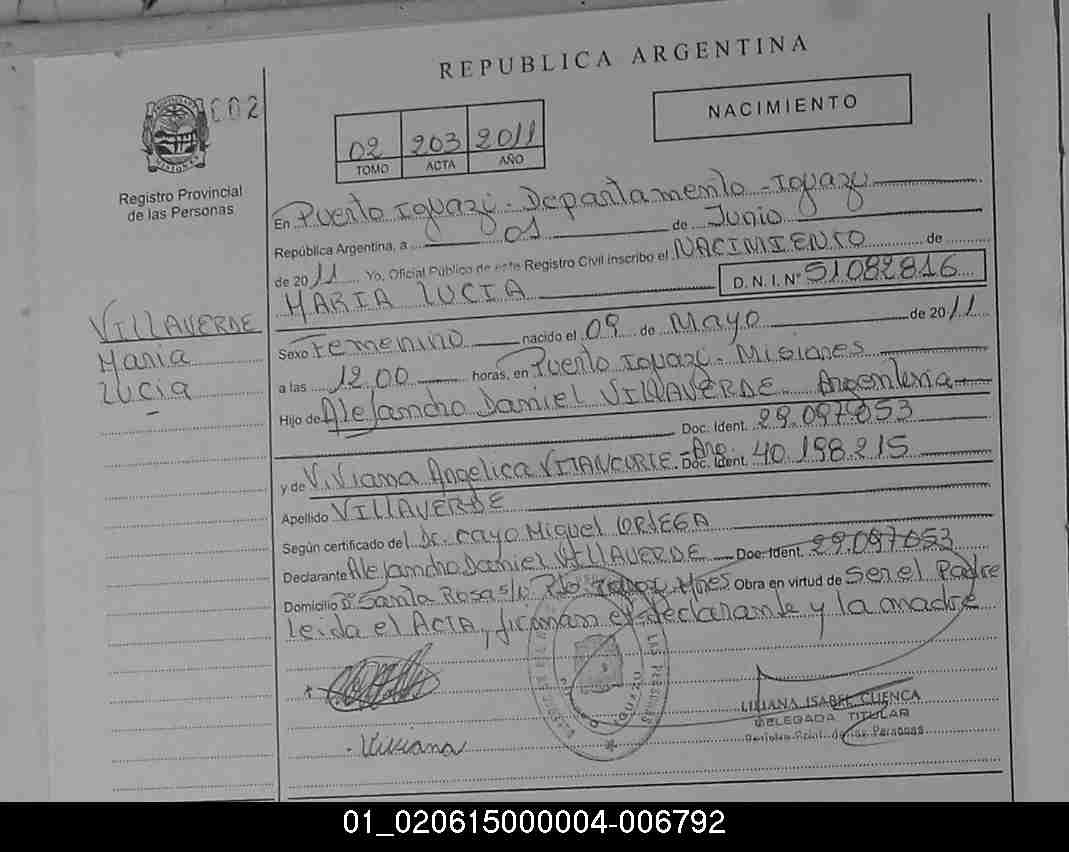 REPUBLICA ARGENTINA
002
NACIMIENTO
02 203 2011
TOMO ACTA AÑO
Registro Provincial
de las Personas
En Puerto Iguazú - Departamento - Iguazú
República Argentina, a 01 de Junio
de 2011 Yo, Oficial Público de este Registro Civil inscribo el NACIMIENTO de
MARIA LUCIA D.N.I.Nº 51082816
VILLAVERDE
Maria
Lucia
Sexo Femenino nacido el 09 de Mayo de 2011
a las 12 00 horas, en Puerto Iguazú - Misiones
Hijo de Alejandro Daniel VILLAVERDE Argentina
Doc. Ident. 29.097.053
y de Viviana Angelica VITANCORTE - Arg. Doc. Ident. 40.198.215
Apellido VILLAVERDE
Según certificado del Dr. Cayo Miguel ORTEGA
Declarante Alejandro Daniel VILLAVERDE Doc. Ident. 29.097.053
Domicilio Bº Santa Rosa s/n Pto Iguazú Mnes Obra en virtud de ser el Padre
leida el ACTA, firman el declarante y la madre
Viviana
LAS PERSONAS
IGUAZU
LILIANA ISABEL CUENCA
DELEGADA TITULAR
Registro Pcial. de las Personas
01_020615000004-006792